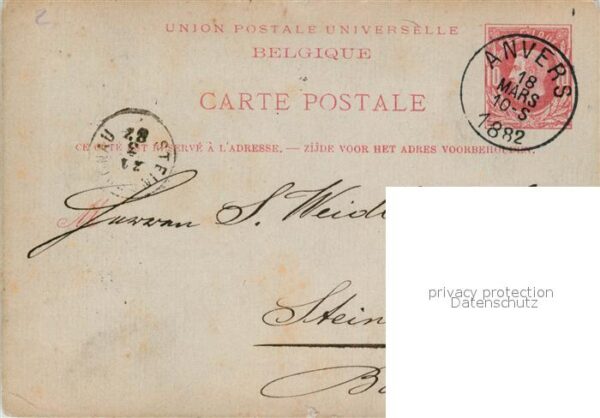 2
UNION POSTALE UNIVERSELLE
BELGIQUE
CARTE POSTALE
ANVERS
18
MARS
10-S
1882
CE CÔTÉ EST RÉSERVÉ À L'ADRESSE. — ZIJDE VOOR HET ADRES VOORBEHOUDEN.
STEIN
3
82
M
Herren S. Weidl
Stein
privacy protection
Datenschutz